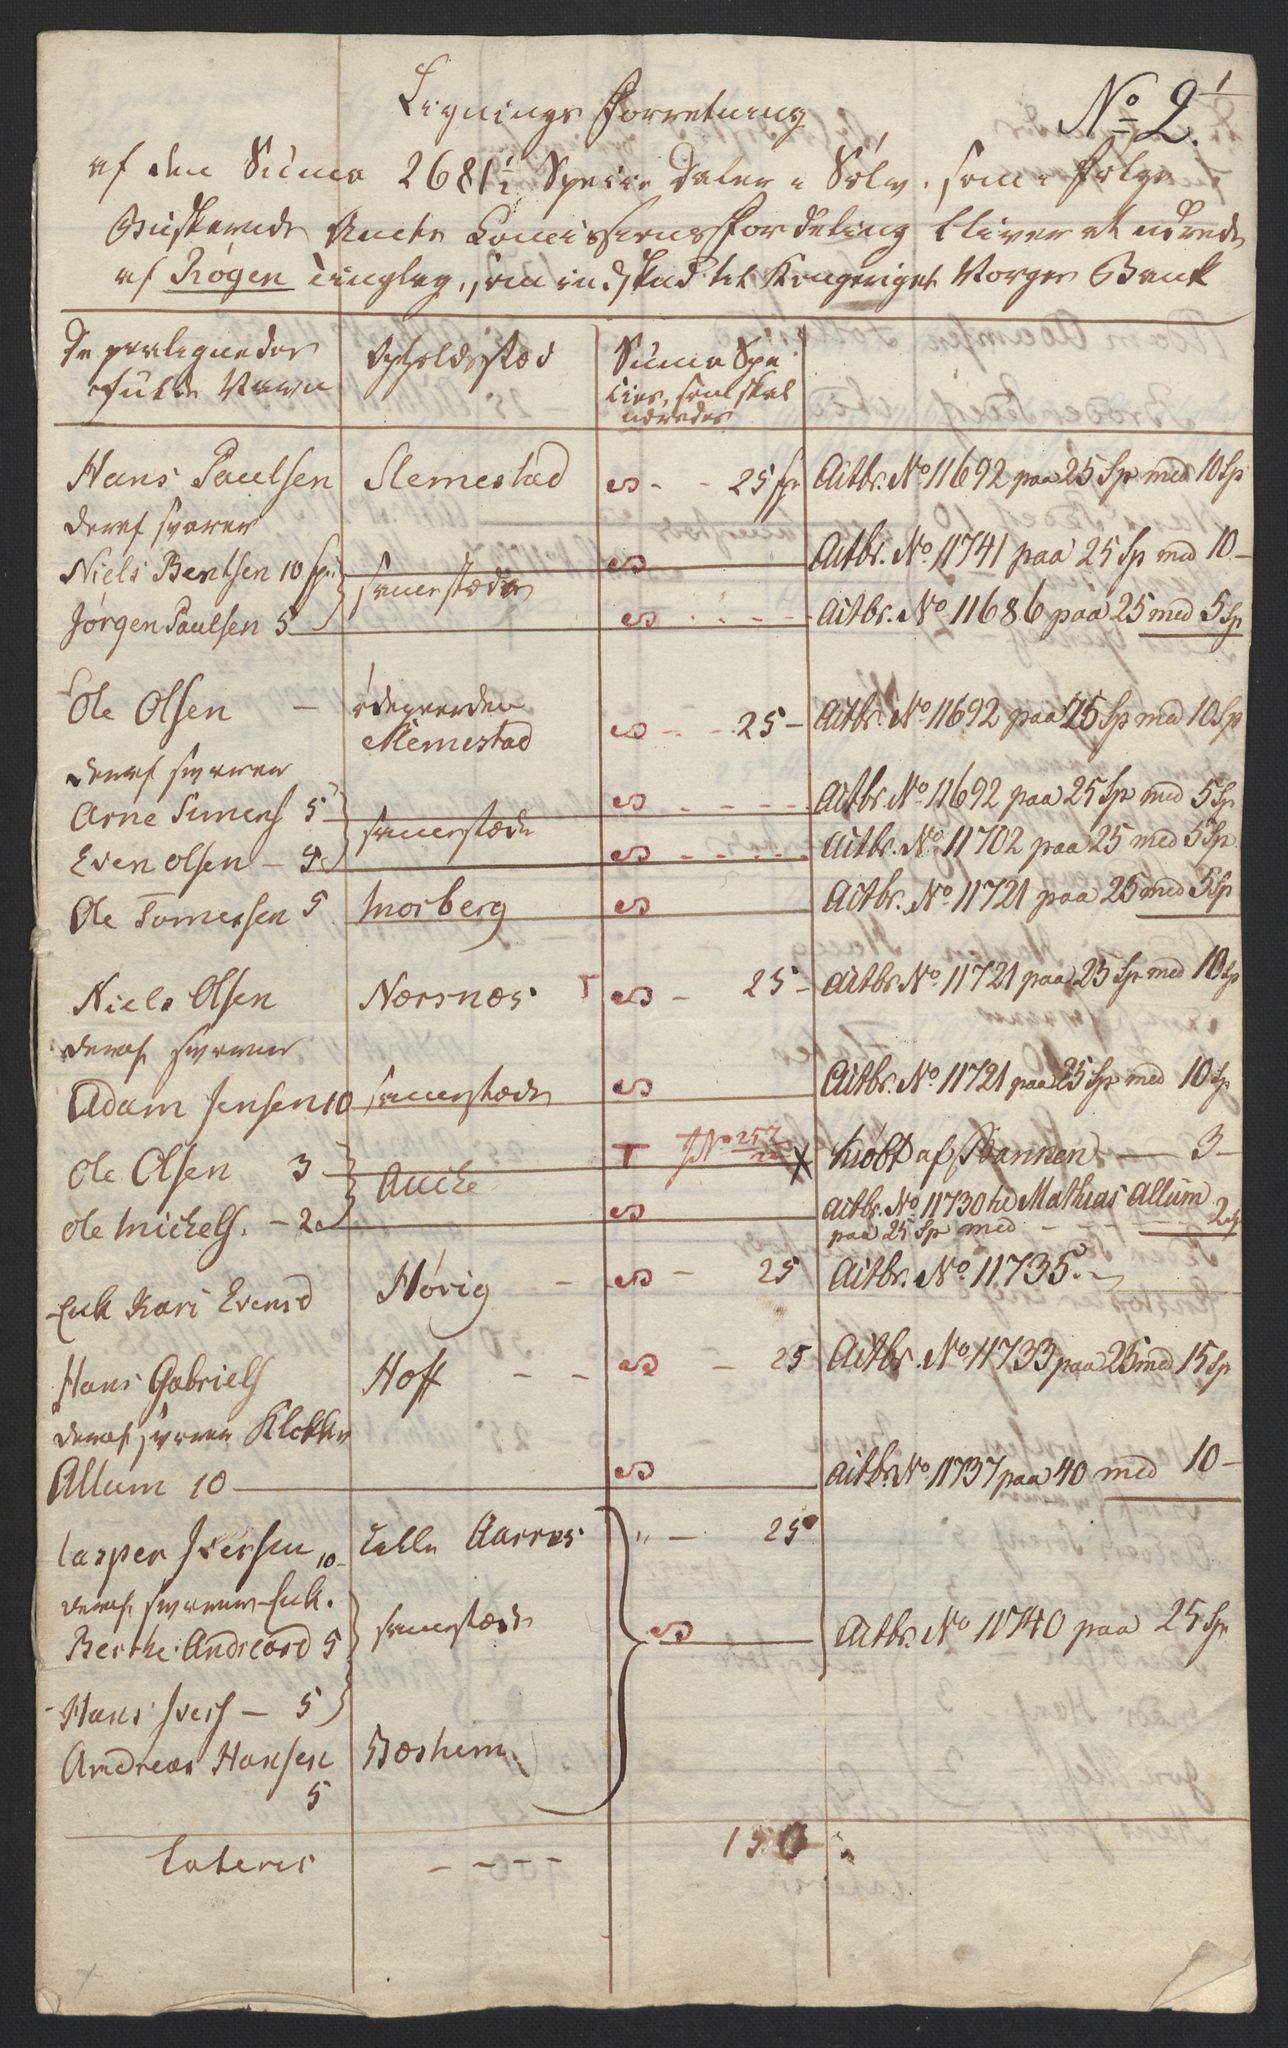 No 2. 1
Lignings Forretning
af den Suma 2681½ Specie Daler i Sølv, som i følge
Buskeruds Amts Comissions Fordeling bliver at udrede
af Røgen Tinglag, som indskud til Kongeriget Norges Bank
De paalignedes fulde Navn | Opholdsstæd | Suma Spe cies, som skal udredes
Hans Paulsen | Slemestad | 25 sp | Actbr. No 11692 paa 25 Sp med 10 Sp
deraf svarer
Niels Bentsen 10 sp | sammestæds | Actbr. No 11741 paa 25 Sp med 10 -
Jørgen Paulsen 5 | Actbr. No 11686 paa 25 med 5 Sp
Ole Olsen - | ødegaarden Slemestad | 25 - | Actbr. No 11692 paa 25 Sp med 10 Sp
deraf svarer
Arne Simens 5 | sammestæds | Actbr. No 11692 paa 25 Sp med 5 Sp
Even Olsen - 5 | Actbr. No 11702 paa 25 med 5 Sp
Ole Tomersen 5 | Morberg | Actbr. No 11721 paa 25 med 5 Sp
Niels Olsen | Nærsnæs T | 25 - | Actbr. No 11721 paa 25 Sp med 10 Sp
deraf svarer
Adam Jensen 10 | sammestæds | Actbr. No 11721 paa 25 Sp med 10 Sp
Ole Olsen 3 | T No 257 X | Kiøbt af Banken - 3 -
Ole Michels. - 2 | Actbr. No 11730 hd Mathias Allum
paa 25 Sp med - 2 sp
Enk Kari Evensd | Hørig - | 25 | Actbr. No 11735.
Hans Gabriels | Hoff - - | 25 | Actbr. No 11733 paa 25 med 15 Sp
deraf svarer Klokker
Allum 10 | Actbr. No 11737 paa 40 med 10 -
Casper Iversen 10 - | Lille Aarres | " - 25
deraf svarer Enk.
Berthe Andreasd 5 | sammestæds | Actbr. No 11740 paa 25 Sp
Hans Ivers - 5
Andreas Hansen | Bøshem
5
Lateris - - - - 150